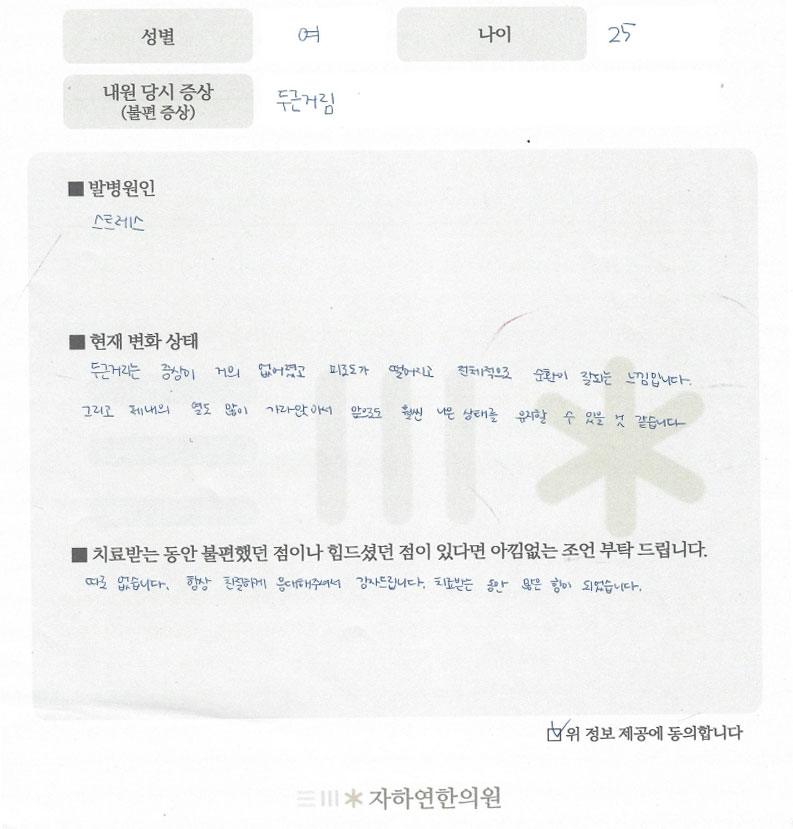 성별 여 나이 25
내원 당시 증상 두근거림
(불편 증상)
■ 발병원인
스트레스
■ 현재 변화 상태
두근거리는 증상이 거의 없어졌고 피로도가 떨어지고 전체적으로 순환이 잘되는 느낌입니다.
그리고 체내의 열도 많이 가라앉아서 앞으로도 훨씬 나은 상태를 유지할 수 있을 것 같습니다
■ 치료받는 동안 불편했던 점이나 힘드셨던 점이 있다면 아낌없는 조언 부탁 드립니다.
따로 없습니다. 항상 친절하게 응대해주셔서 감사드립니다. 치료받는 동안 많은 힘이 되었습니다.
☑ 위 정보 제공에 동의합니다
자하연한의원